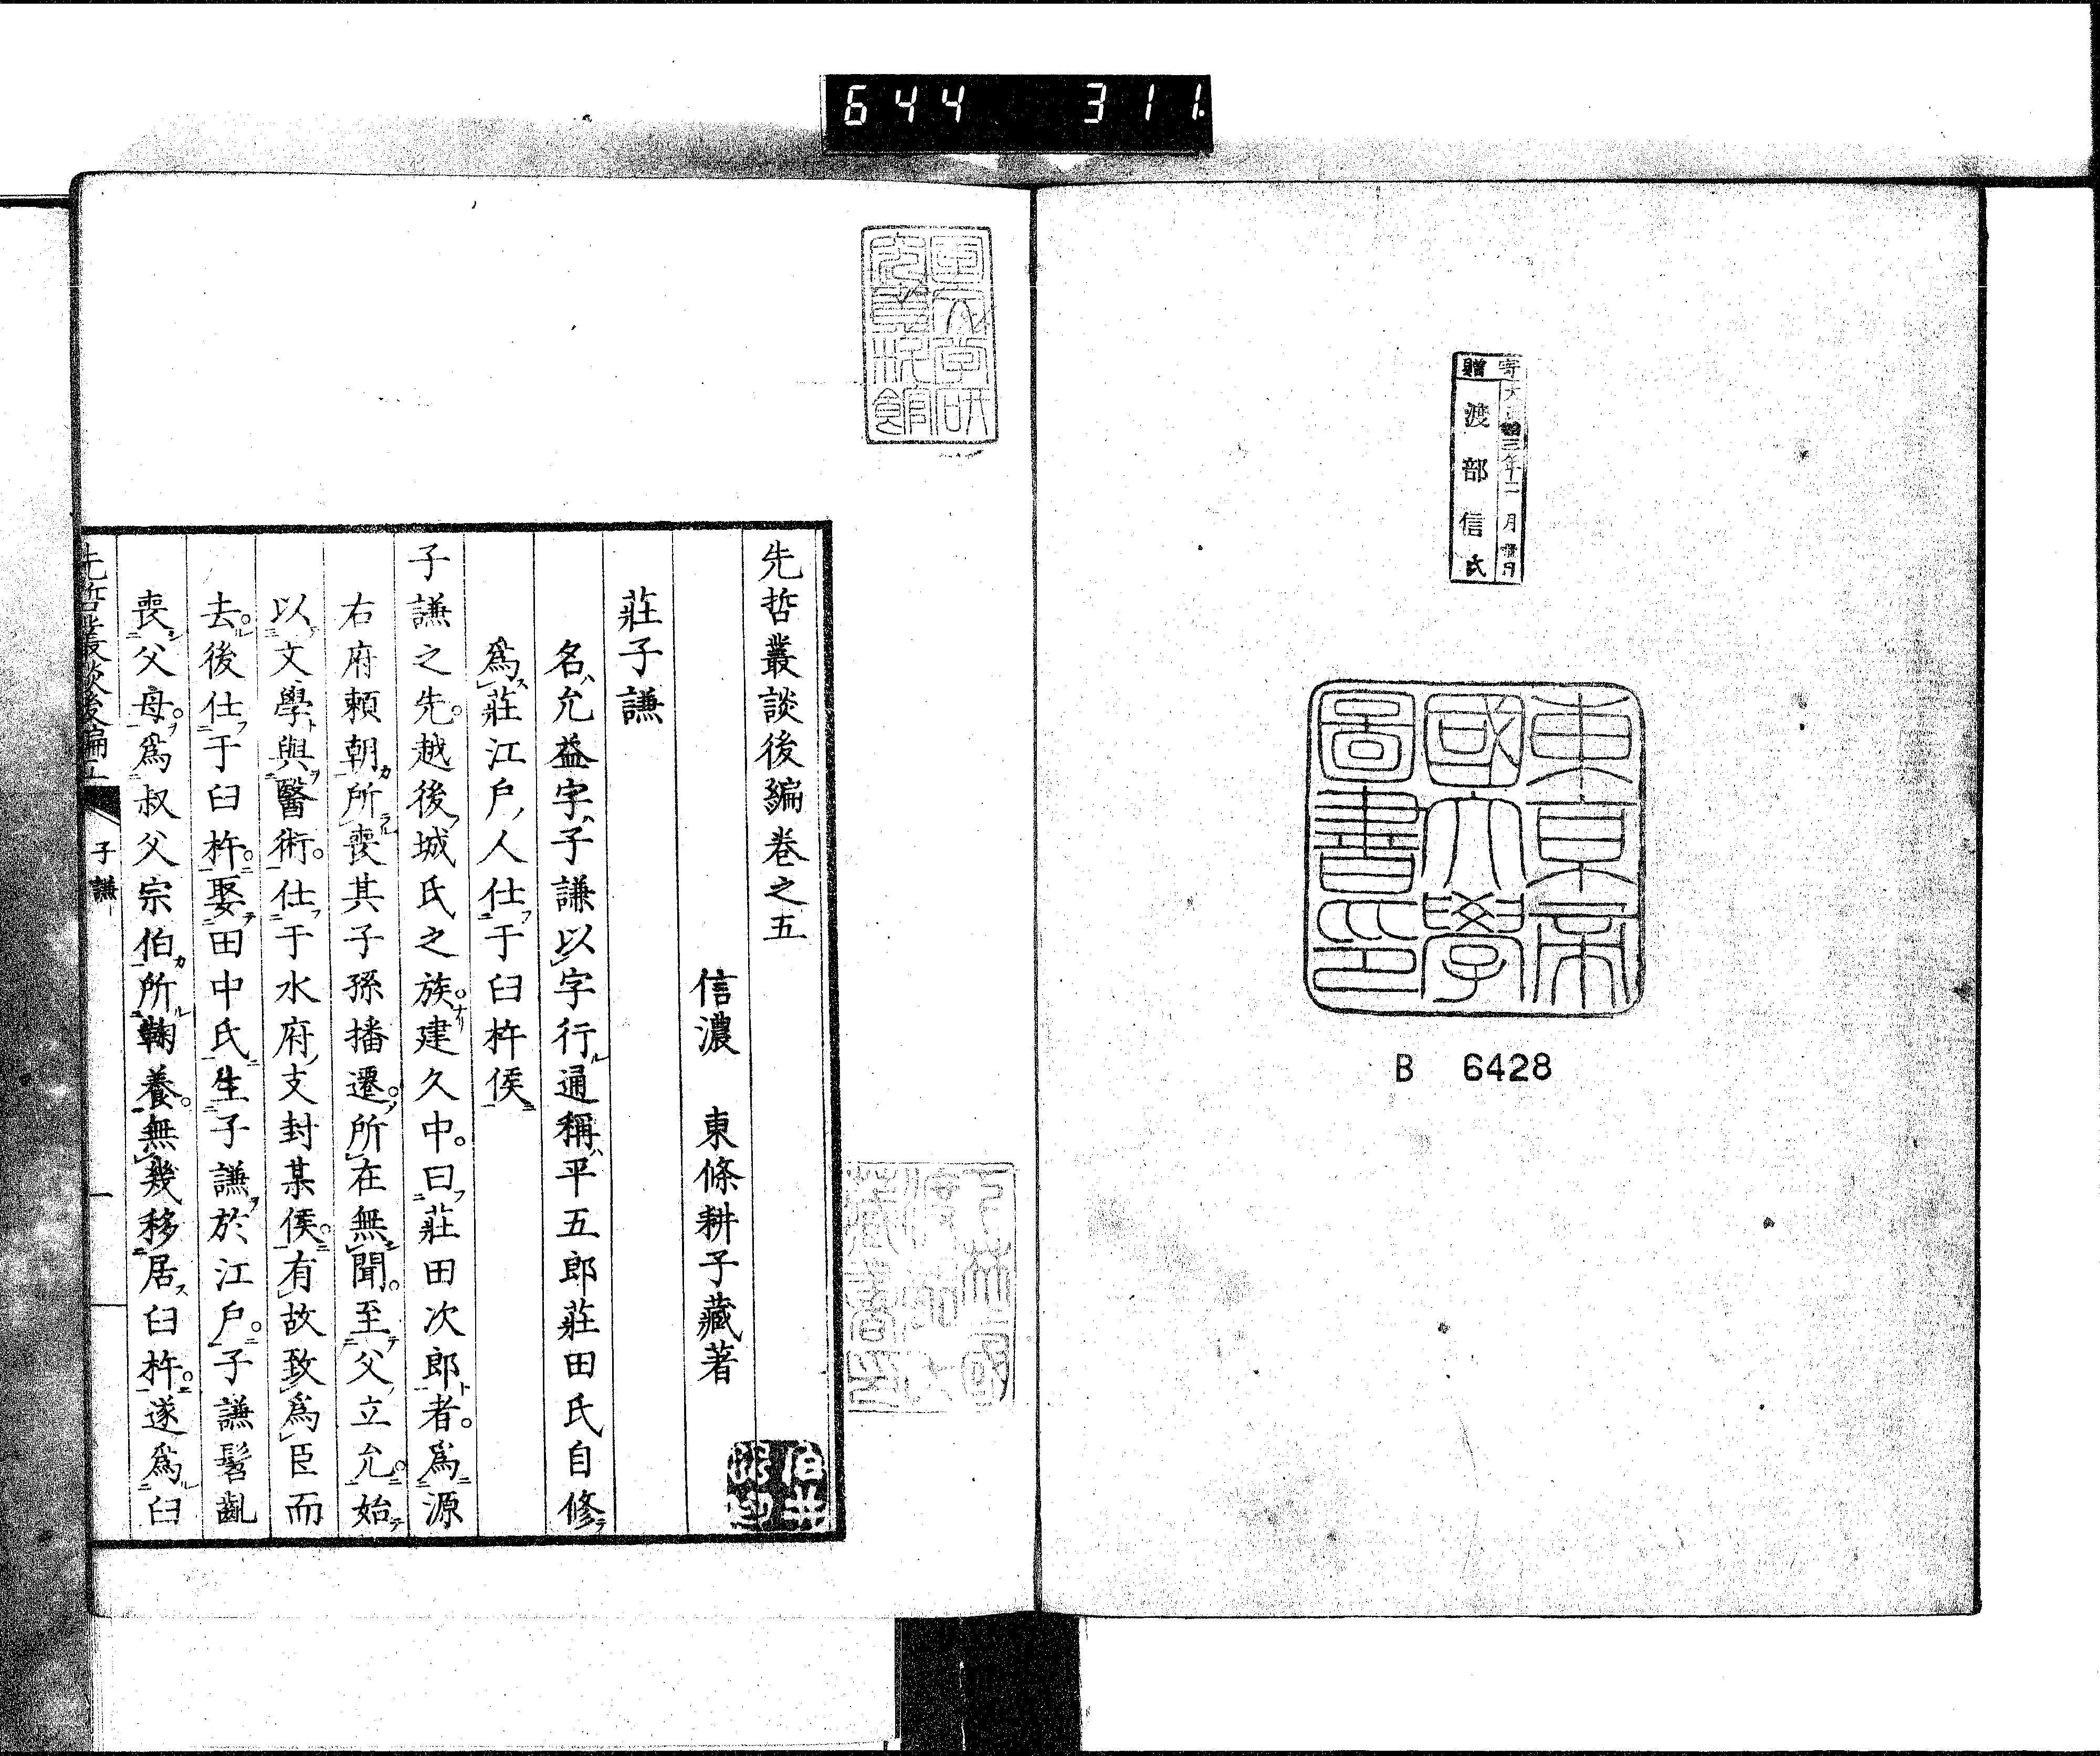 644 311
寄贈
渡部信氏
東京帝
國大學
圖書印
B 6428
先哲叢談後編卷之五
信濃 東條耕子藏著
莊子謙
名允益字子謙以字行通稱平五郎莊田氏自修
爲莊江戶人仕于臼杵侯
子謙之先越後城氏之族建久中曰莊田次郎者爲源
右府賴朝所喪其子孫播遷所在無聞至父立允始
以文學與醫術仕于水府支封某侯有故致爲臣而
去後仕于臼杵娶田中氏生子謙於江戶子謙髫齔
喪父母爲叔父宗伯所鞠養無幾移居臼杵遂爲臼
先哲叢談後編五 子謙 一